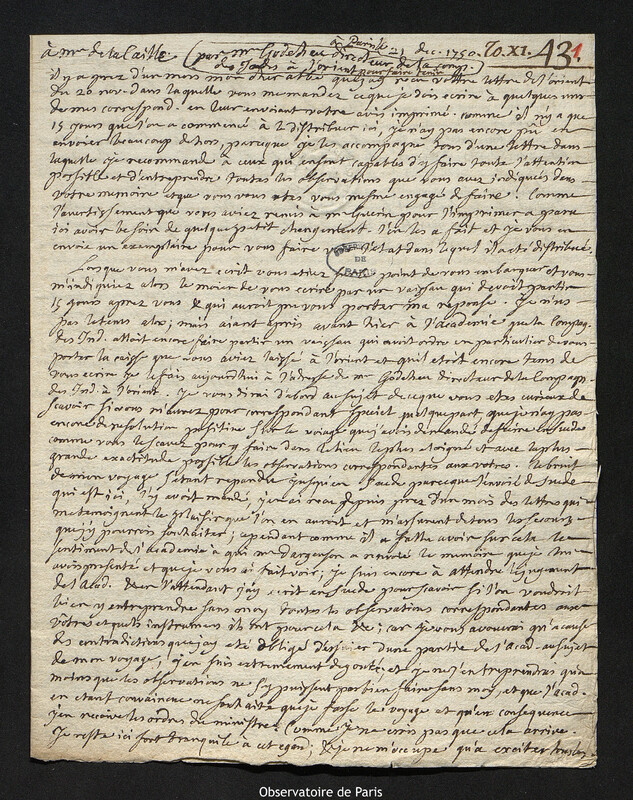 à Mr de la Caille. à Paris le 21 dec. 1750. To. XI. 43 1
(par Mr Godeheu directeur de la comp.
des Indes à l'orient pour faire tenir)
il y a près d'un mois mon cher abbé que j'ay reçu votre lettre de l'orient
du 20 nov. dans laquelle vous me mandez ce que je dois ecrire à quelques uns
de mes correspond. en leur envoiant votre avis imprimé. comme il n'y a que
15 jours que l'on a commencé à le distribuer ici, je n'ay pas encore pû en
envoier beaucoup dehors, parceque je les accompagne tous d'une lettre dans
laquelle je recommande à ceux qui en sont capables d'y faire toute l'attention
possible et d'entreprendre toutes les observations que vous avez indiquées dans
votre memoire et que vous vous etes vous meme engagé de faire. Comme
l'avertissement que vous aviez remis à Mr Guerin pour l'imprimer a paru
ici avoir besoin de quelque petit changement. l'on les a fait et je vous en
envoie un exemplaire pour vous faire voir l'etat dans lequel il a eté distribué.
Lorsque vous m'avez ecrit vous etiez sur le point de vous embarquer et vous
m'indiquiez alors le moien de vous ecrire par un vaisseau qui devoit partir
15 jours après vous & qui auroit pu vous porter ma reponse. Je n'eus
pas le tems alors; mais aiant appris avant hier à l'academie que la Compag.
des Ind. alloit encore faire partir un vaisseau qui avoit ordre en particulier de vous
porter la caisse que vous aviez laissé à l'orient et qu'il etoit encore tems de
vous ecrire je le fais aujourdhui à l'adresse de Mr Godeheu directeur de la Compagn.
des Ind. à l'orient. Je vous dirai d'abord au sujet de ce que vous etes curieux de
scavoir si vous m'aurez pour correspondant quelque part que je n'ay pas
encore de resolution positive sur le voiage que j'avois demandé de faire en Suede
comme vous le scavez pour y faire dans le lieu le plus eloigné et avec la plus
grande exactitude possible les observations correspondantes aux votres. Le bruit
de mon voyage s'etant repandu jusqu'en Suede parceque l'envoié de Suede
qui est ici, l'y avoit mandé, j'en ai reçu depuis près d'un mois des lettres qui
me temoignent le plaisir que l'on en auroit et m'assurent de tous les secours
que j'y pourrois souhaiter; cependant comme il a fallu avoir sur cela le
sentiment de l'academie à qui Mr Dargenson a renvoié le memoire que je lui
avois presenté et que je vous ai fait voir; je suis encore à attendre le jugement
de l'Acad. & en l'attendant j'ay ecrit en Suede pour scavoir si l'on voudroit
bien y entreprendre sans moy toutes les observations correspondantes aux
vôtres et quels instrumens ils ont pour cela &c; car je vous avouerai qu'à cause
des contradictions que j'ay eté obligé d'essuier d'une partie de l'Acad. au sujet
de mon voyage, j'en suis extremement degouté; et je ne l'entreprendrai qu'à
moins que les observations ne s'y puissent pas bien faire sans moy, et que l'Acad.
en etant convaincue ne souhaite que je fasse le voyage et qu'en consequence
j'en recoive les ordres du ministre. Comme je ne crois pas que cela arrive.
Je reste ici fort tranquile à cet egard; & je ne m'occupe qu'à exciter tous les
Observatoire de Paris